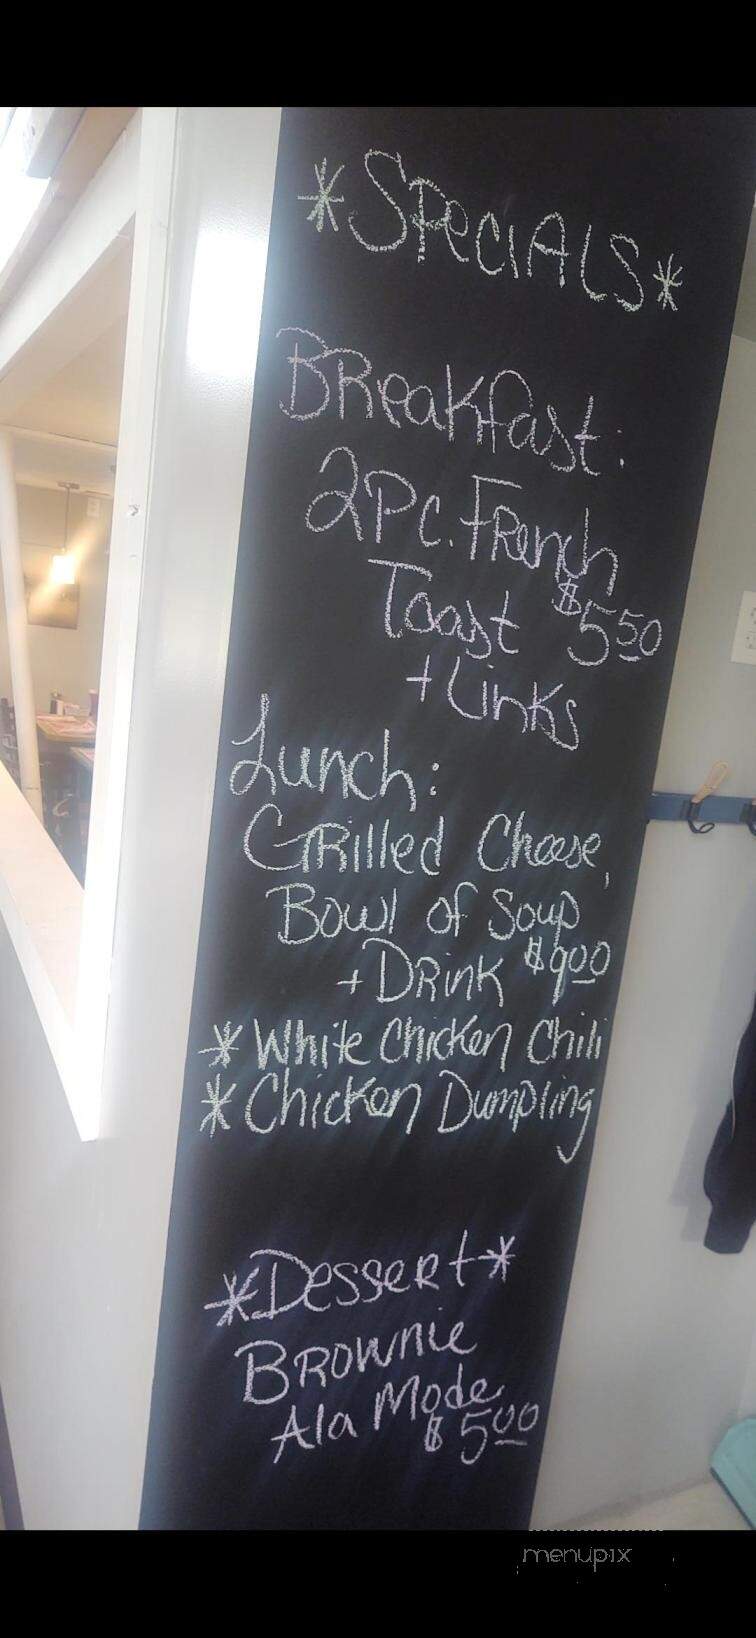 *Specials*
Breakfast:
2Pc. French
Toast $5.50
+ Links
Lunch:
Grilled Cheese,
Bowl of Soup
+ Drink $9.00
*White Chicken Chili
*Chicken Dumpling
*Dessert*
Brownie
Ala Mode
$5.00
menupix